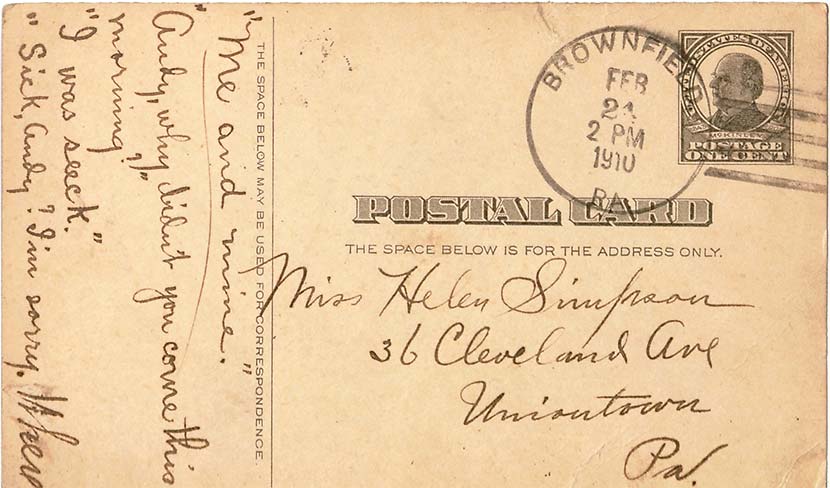 BROWNFIELD
FEB
24
2 PM
1910
PA.
UNITED STATES OF AMERICA
McKINLEY
POSTAGE
ONE CENT
POSTAL CARD
THE SPACE BELOW IS FOR THE ADDRESS ONLY.
Miss Helen Simpson
36 Cleveland Ave
Uniontown
Pa.
THE SPACE BELOW MAY BE USED FOR CORRESPONDENCE.
"Me and mine."
"Andy, why didn't you come this
morning?"
"I was seeck."
"Sick, Andy? I'm sorry.